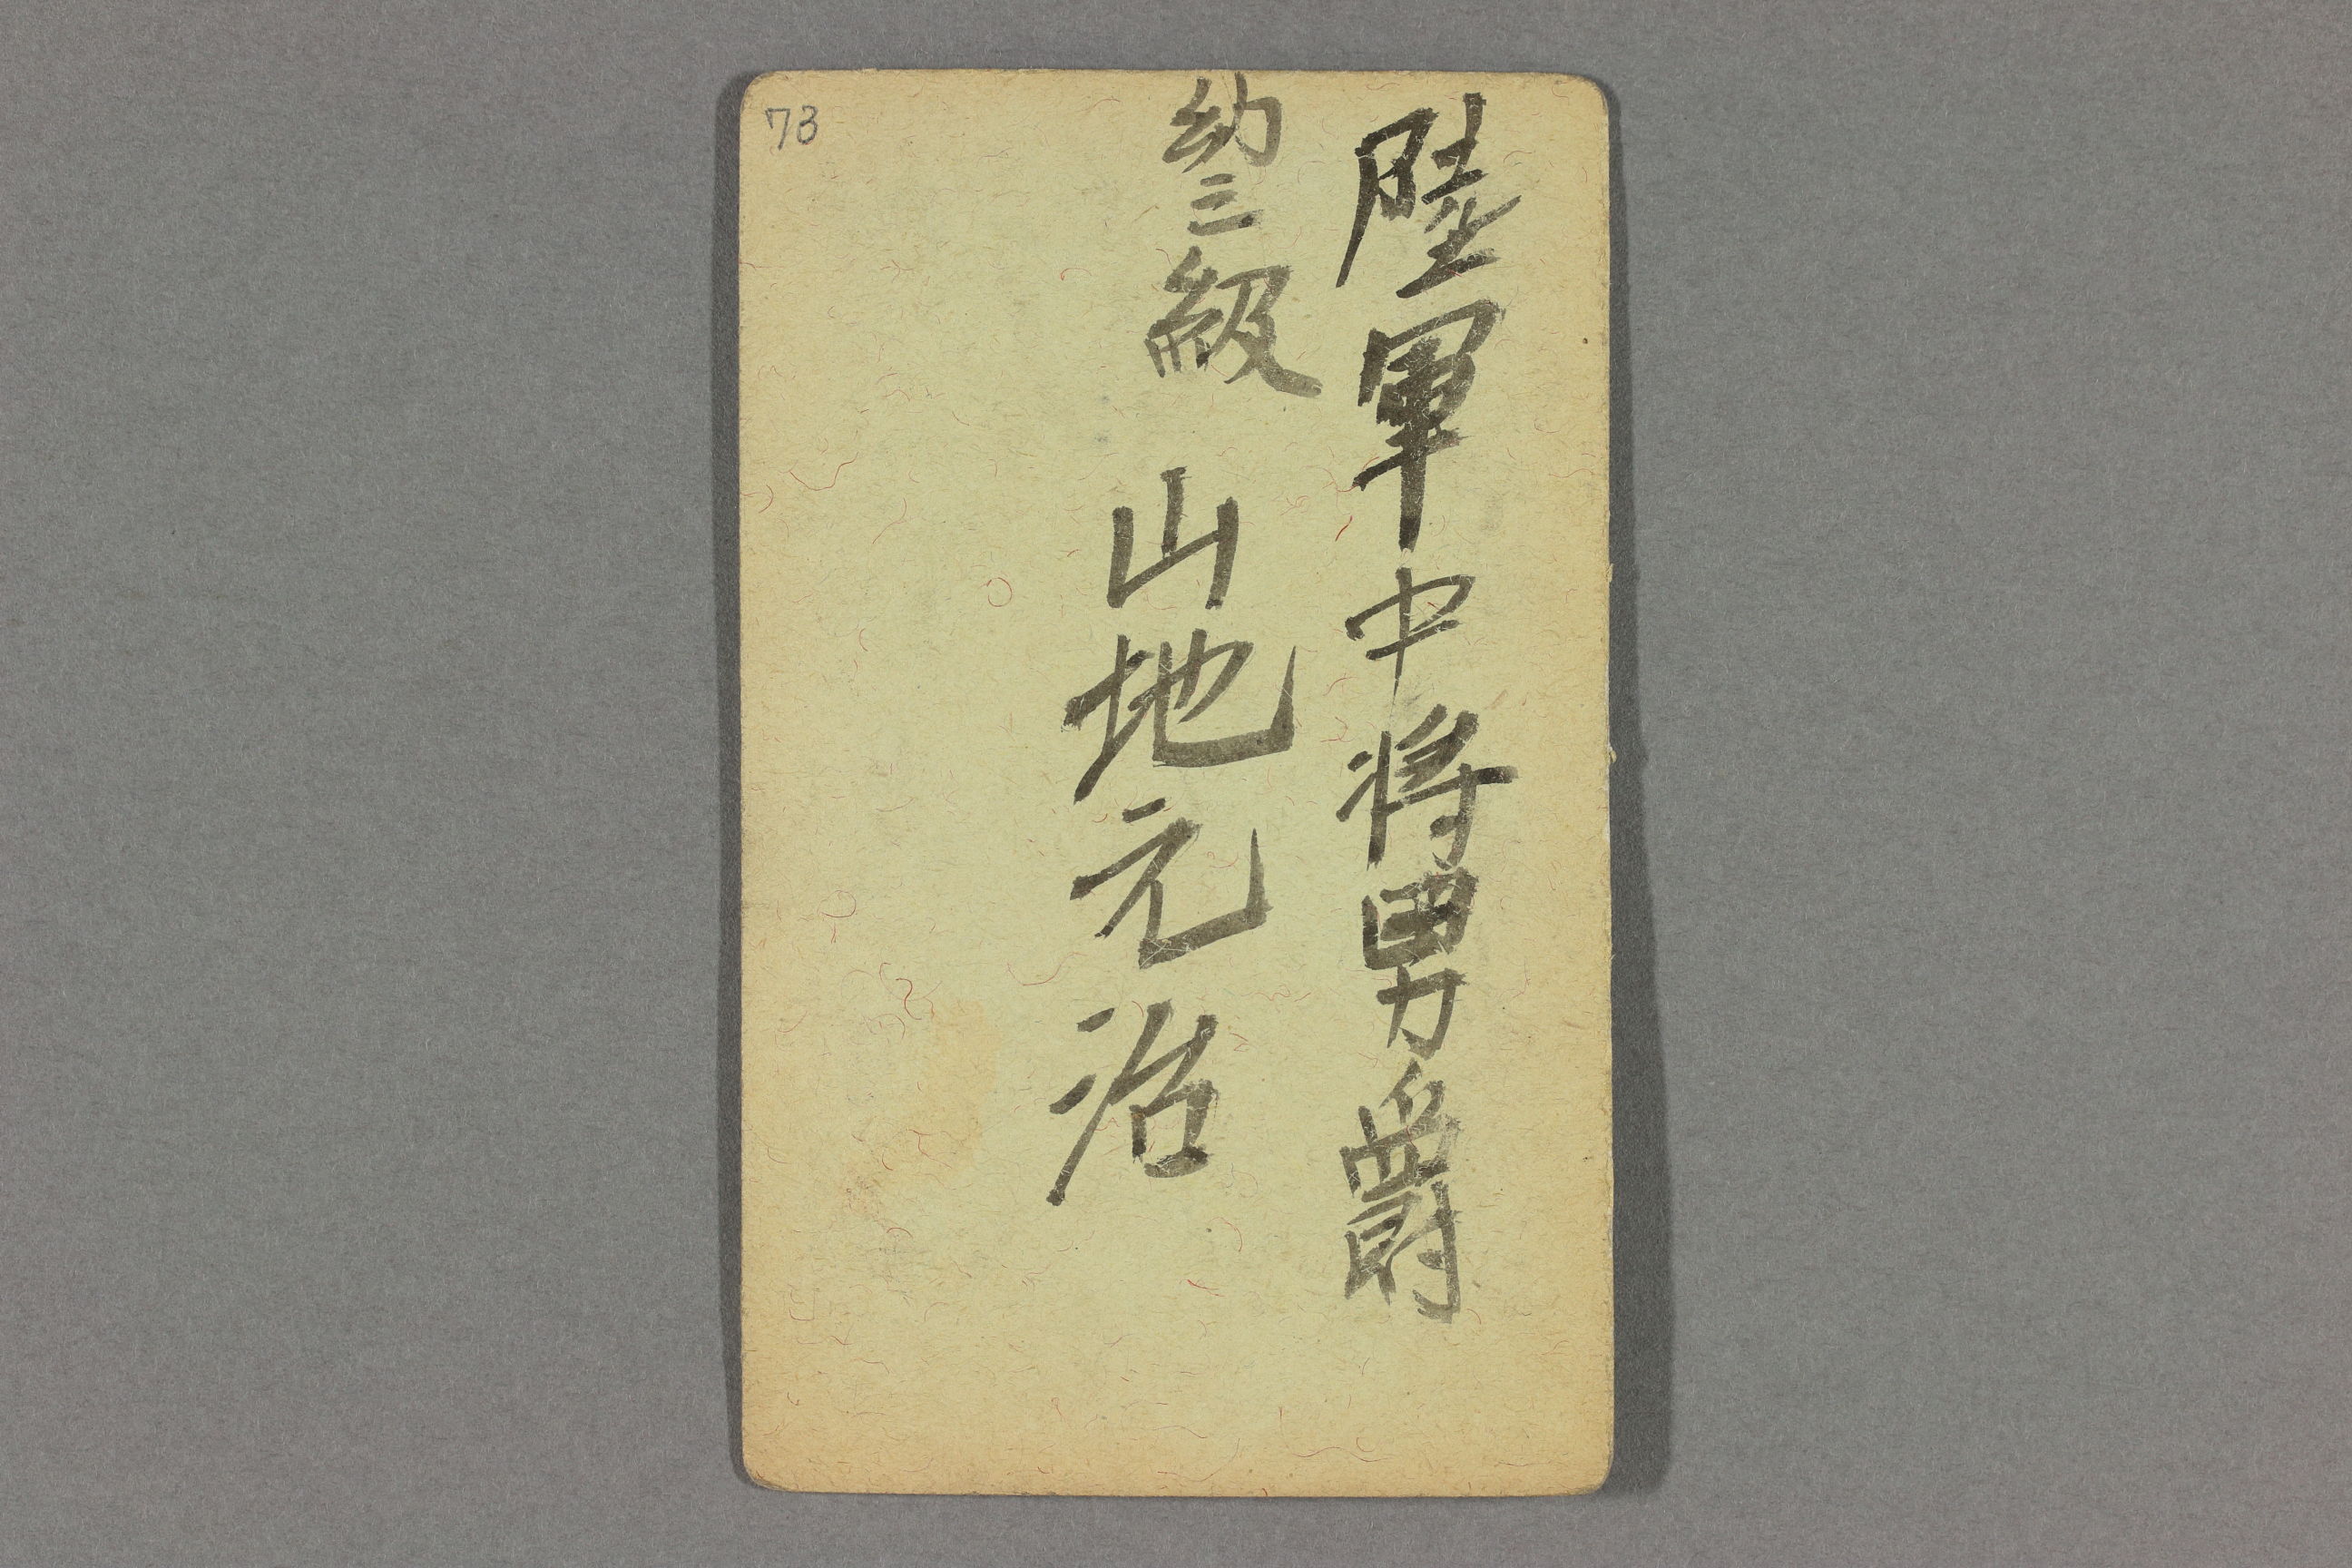 陸軍中将男爵
功三級 山地元治
73